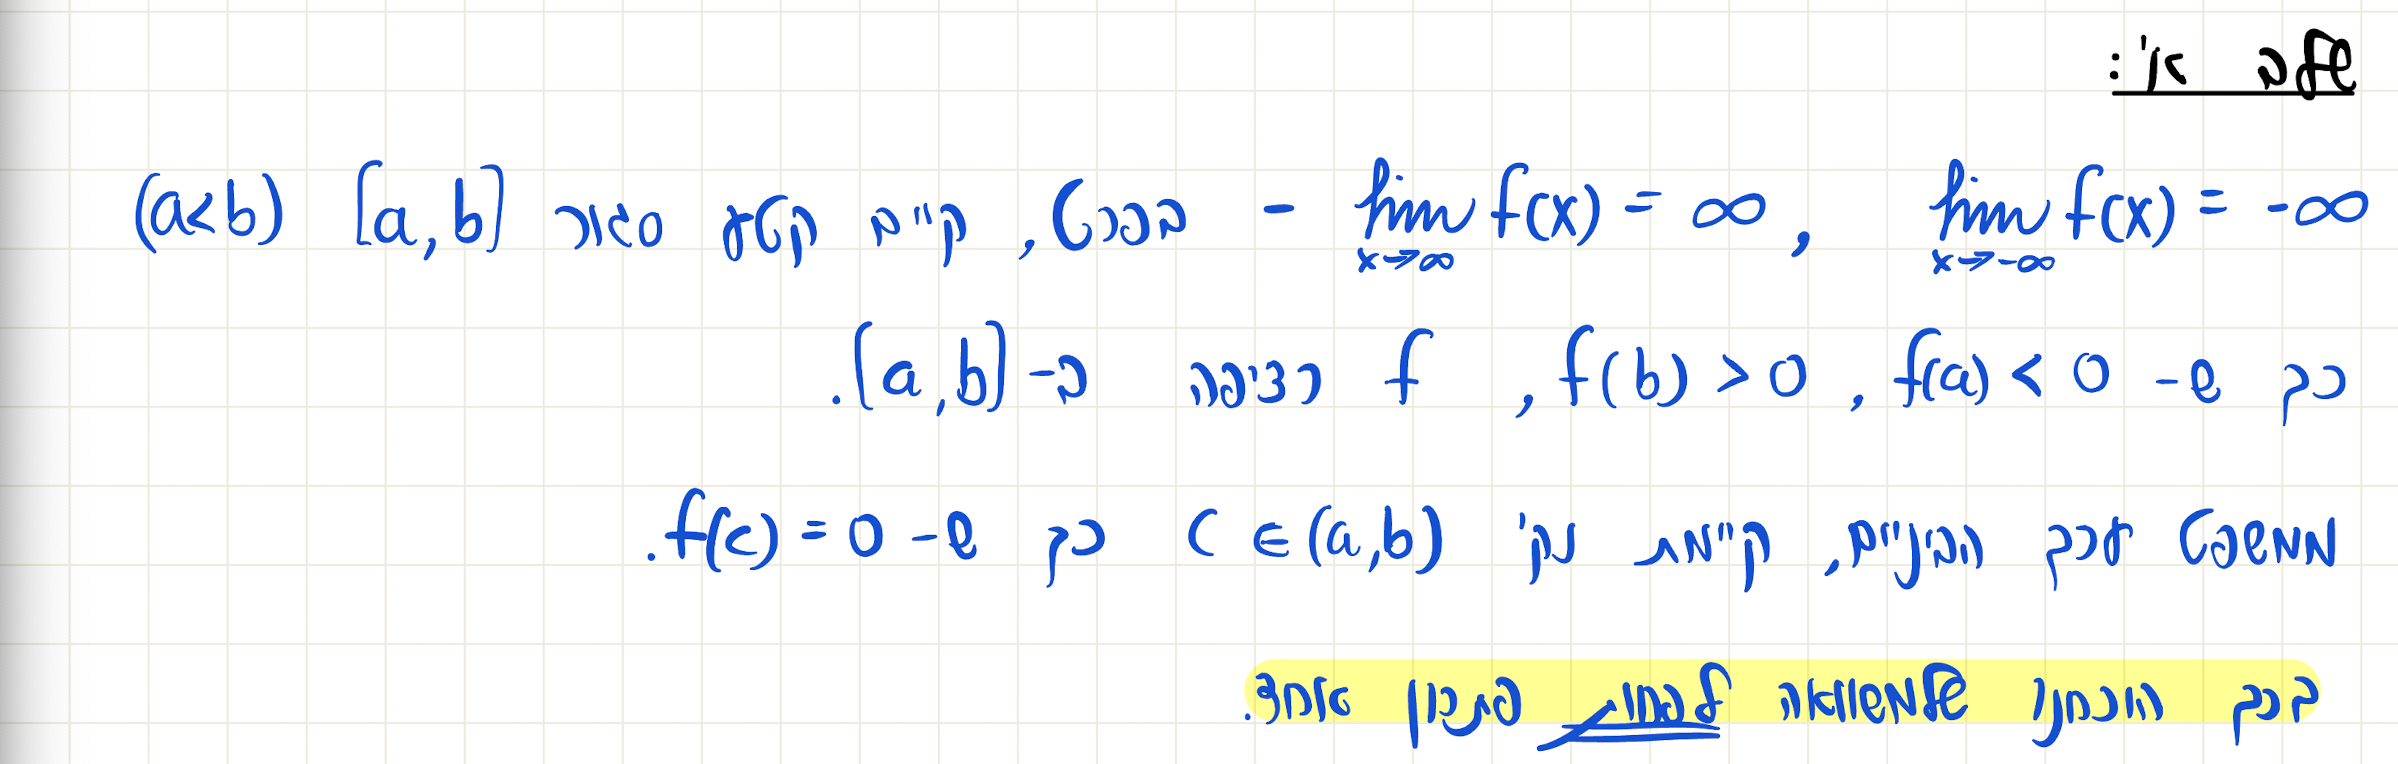 שלב א':
lim x→-∞ f(x) = -∞ , lim x→∞ f(x) = ∞ - בפרט, קיים קטע סגור [a,b] (a<b)
כך ש- f(a) < 0 , f(b) > 0 , f רציפה ב- [a,b].
ממשפט ערך הביניים, קיימת נק' c ∈ (a,b) כך ש- f(c) = 0.
בכך הוכחנו שלמשוואה לפחות פתרון אחד.